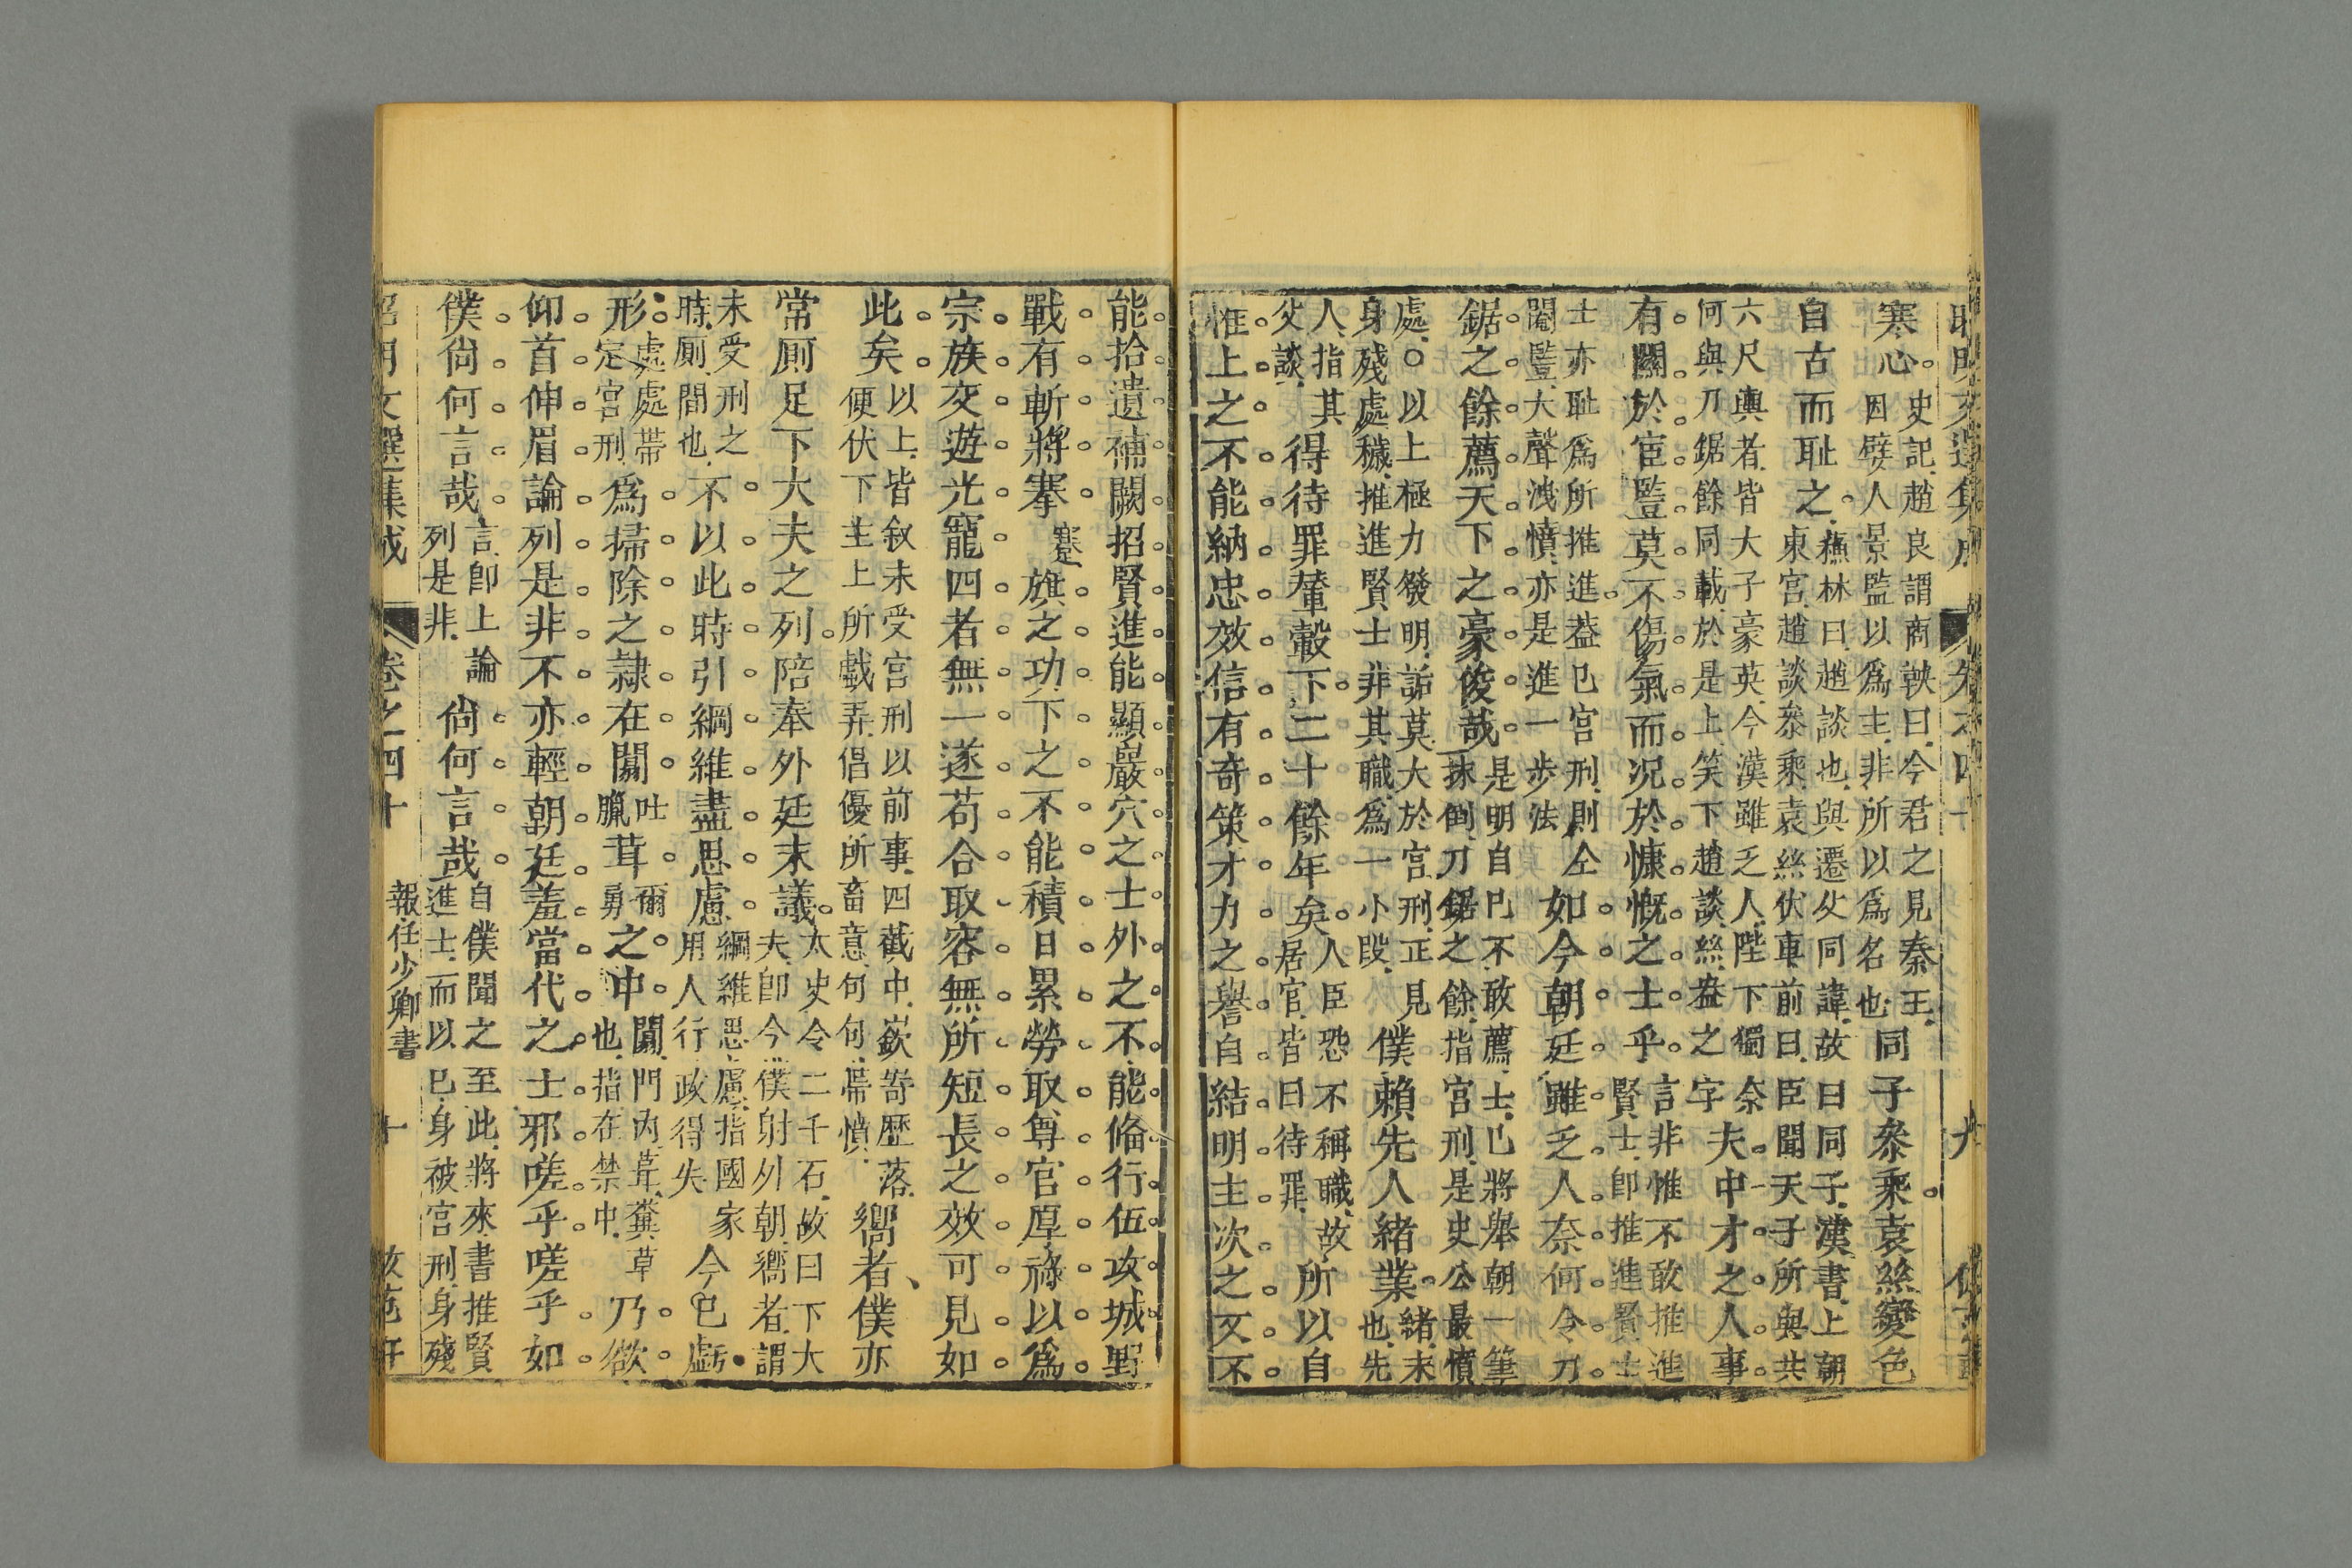 昭明文選集成 卷之四十 九
寒心。史記趙良謂商鞅曰今君之見秦王
因嬖人景監以爲主非所以爲名也同子參乘袁絲變色
自古而恥之。蘇林曰趙談也與遷父同諱故曰同子漢書上朝
東宮趙談參乘袁絲伏車前曰臣聞天子所與共
六尺輿者皆大子豪英今漢雖乏人陛下獨奈
何與刀鋸餘同載於是上笑下趙談絲盎之字夫中才之人事
有關於宦豎莫不傷氣而况於慷慨之士乎言非惟不敢推進
賢士即推進賢士
士亦恥爲所推進葢已宮刑則仝
閹豎大聲洩憤亦是進一步法如今朝廷雖乏人奈何令刀
鋸之餘薦天下之豪俊哉是明自己不敢薦士已將舉朝一筆
抹倒刀鋸之餘指宮刑是史公最憤
處○以上極力發明詬莫大於宮刑正見
身殘處穢推進賢士非其職爲一小段僕賴先人緒業緒末
也先
人指其
父談得待罪輦轂下二十餘年矣人臣恐不稱職故
居官皆曰待罪所以自
惟上之不能納忠效信有奇策才力之譽自結明主次之又不
能拾遺補闕招賢進能顯巖穴之士外之不能備行伍攻城野
戰有斬將搴蹇旗之功下之不能積日累勞取尊官厚祿以爲
宗族交遊光寵四者無一遂苟合取容無所短長之效可見如
此矣以上皆叙未受宮刑以前事四截中嶔嵜歷落
便伏下主上所戲弄倡優所畜意句句帶憤嚮者僕亦
常厠足下大夫之列陪奉外廷末議太史令二千石故曰下大
夫即今僕射外朝嚮者謂
未受刑之
時厠間也不以此時引綱維盡思慮綱維思慮指國家
用人行政得失今已虧
形處處帶
定宮刑爲掃除之隸在闒吐
臘茸爾
勇之中闒門內茸糞草
也指在禁中乃欲
仰首伸眉論列是非不亦輕朝廷羞當代之士邪嗟乎嗟乎如
僕尙何言哉言即上論
列是非尙何言哉自僕聞之至此將來書推賢
進士而以已身被宮刑身殘
昭明文選集成 卷之四十 報任少卿書 十